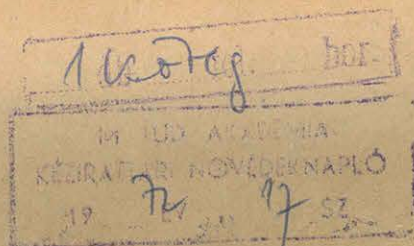 1 köteg. bor.
M TUD AKADÉMIA
KÉZIRATTÁRI NÖVEDÉKNAPLÓ
19 72 ÉV 17 SZ